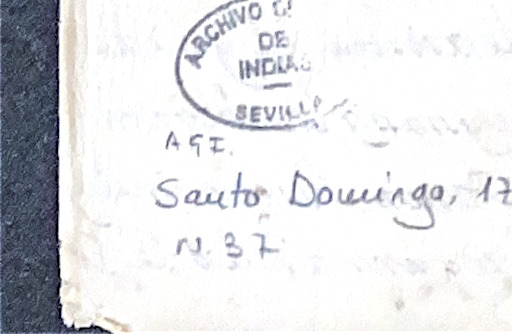 ARCHIVO
DE
INDIAS
SEVILLA
AGI.
Santo Domingo, 17
N. 37